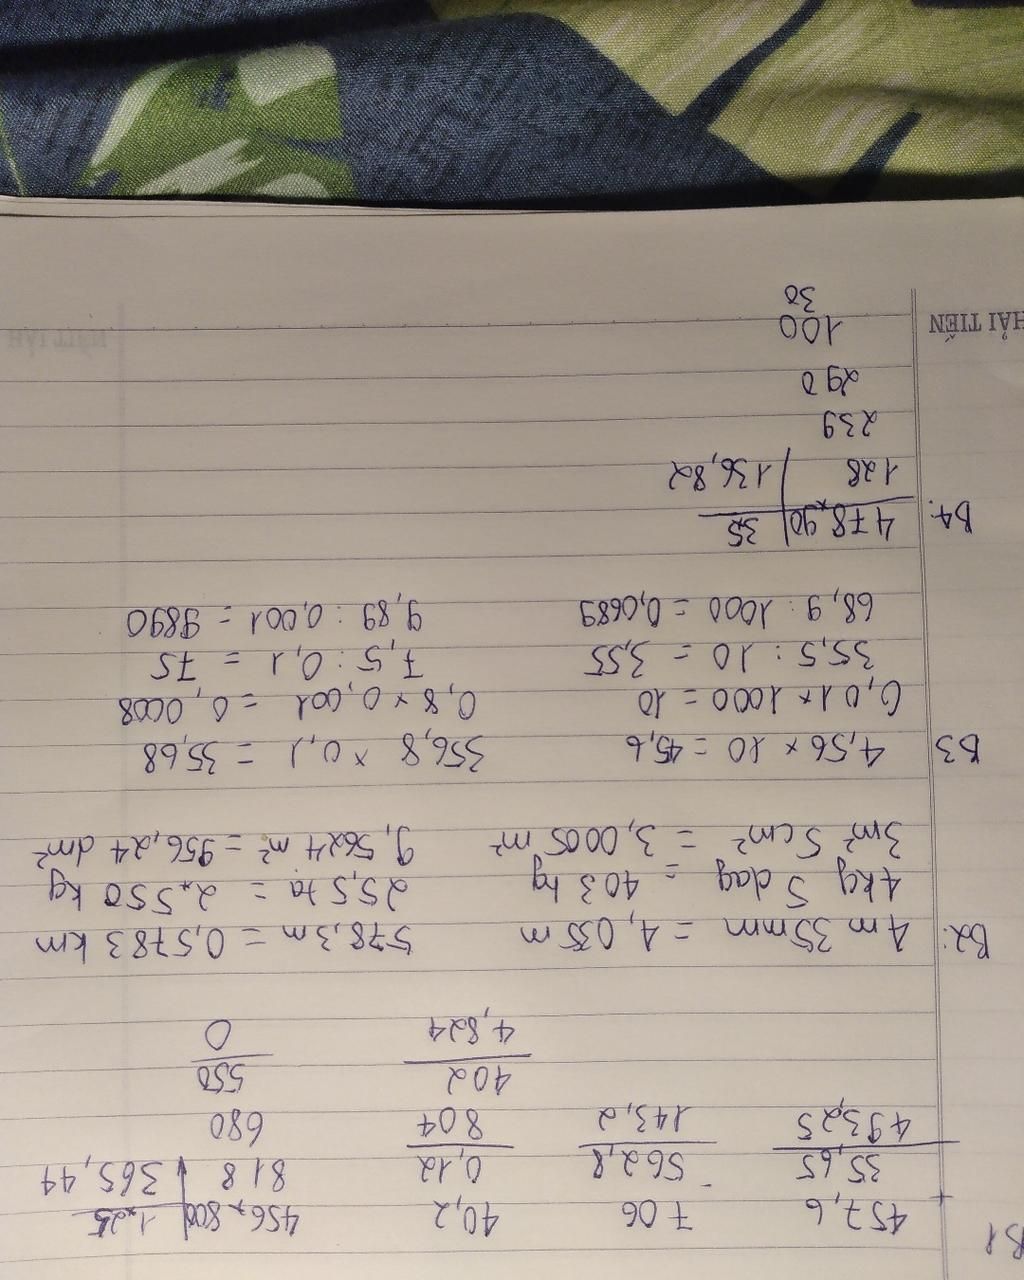 B1
457,6 706 40,2 456,800 1,25
+ 35,65 - 562,8 0,12 818 365,44
493,25 143,2 804 680
402 550
4,824 0
B2: 4m 35mm = 4,035 m 578,3m = 0,5783 km
4kg 5 dag = 403 kg 25,5 ta = 2.550 kg
3m² 5cm² = 3,0005 m² 9,5624 m² = 956,24 dm²
B3 4,56 × 10 = 45,6 356,8 × 0,1 = 35,68
0,01 × 1000 = 10 0,8 × 0,001 = 0,0008
35,5 : 10 = 3,55 7,5 : 0,1 = 75
68,9 : 1000 = 0,0689 9,89 : 0,001 = 9890
B4: 478,90 3,5
128 136,82
239
290
100
30
HẢI TIẾN